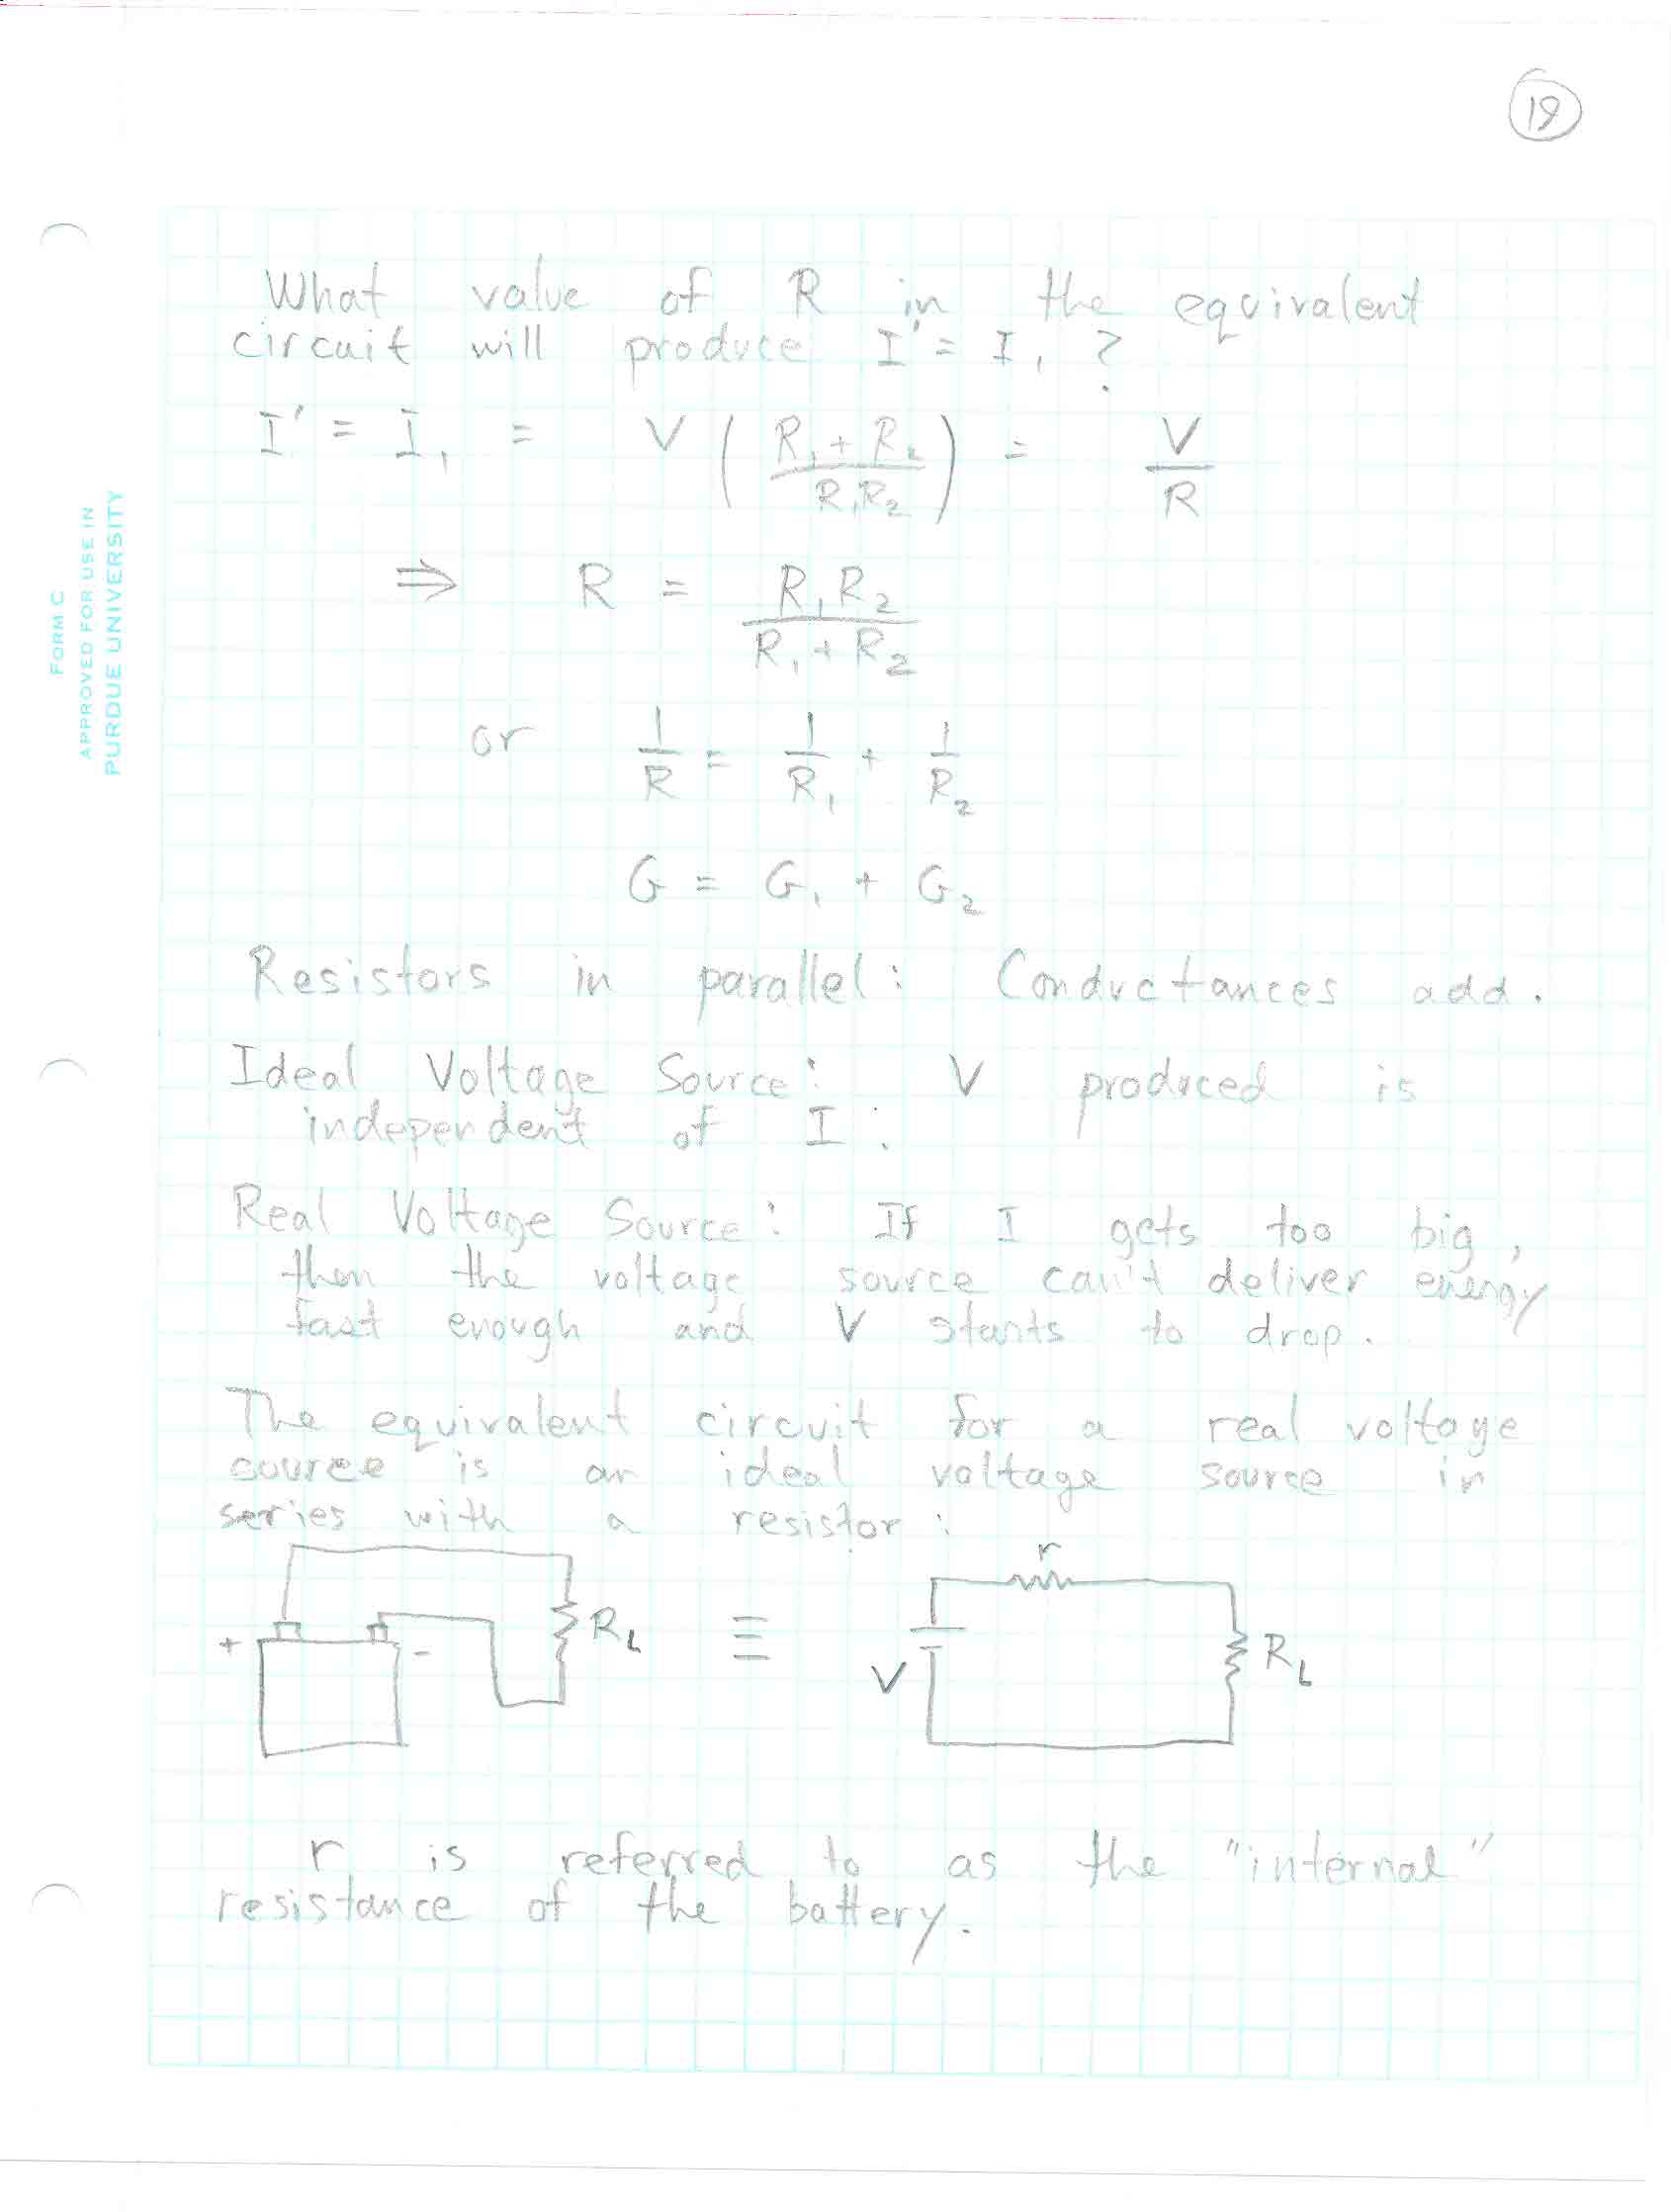 19
FORM C
APPROVED FOR USE IN
PURDUE UNIVERSITY
What value of R in the equivalent
circuit will produce I' = I₁ ?
I' = I₁ = V ( (R₁ + R₂) / (R₁R₂) ) = V / R
⇒ R = R₁R₂ / (R₁ + R₂)
or 1/R = 1/R₁ + 1/R₂
G = G₁ + G₂
Resistors in parallel: Conductances add.
Ideal Voltage Source: V produced is
independent of I:
Real Voltage Source: If I gets too big,
then the voltage source can't deliver energy
fast enough and V starts to drop.
The equivalent circuit for a real voltage
source is an ideal voltage source in
series with a resistor:
+ - R_L ≡ V r R_L
r is referred to as the "internal"
resistance of the battery.